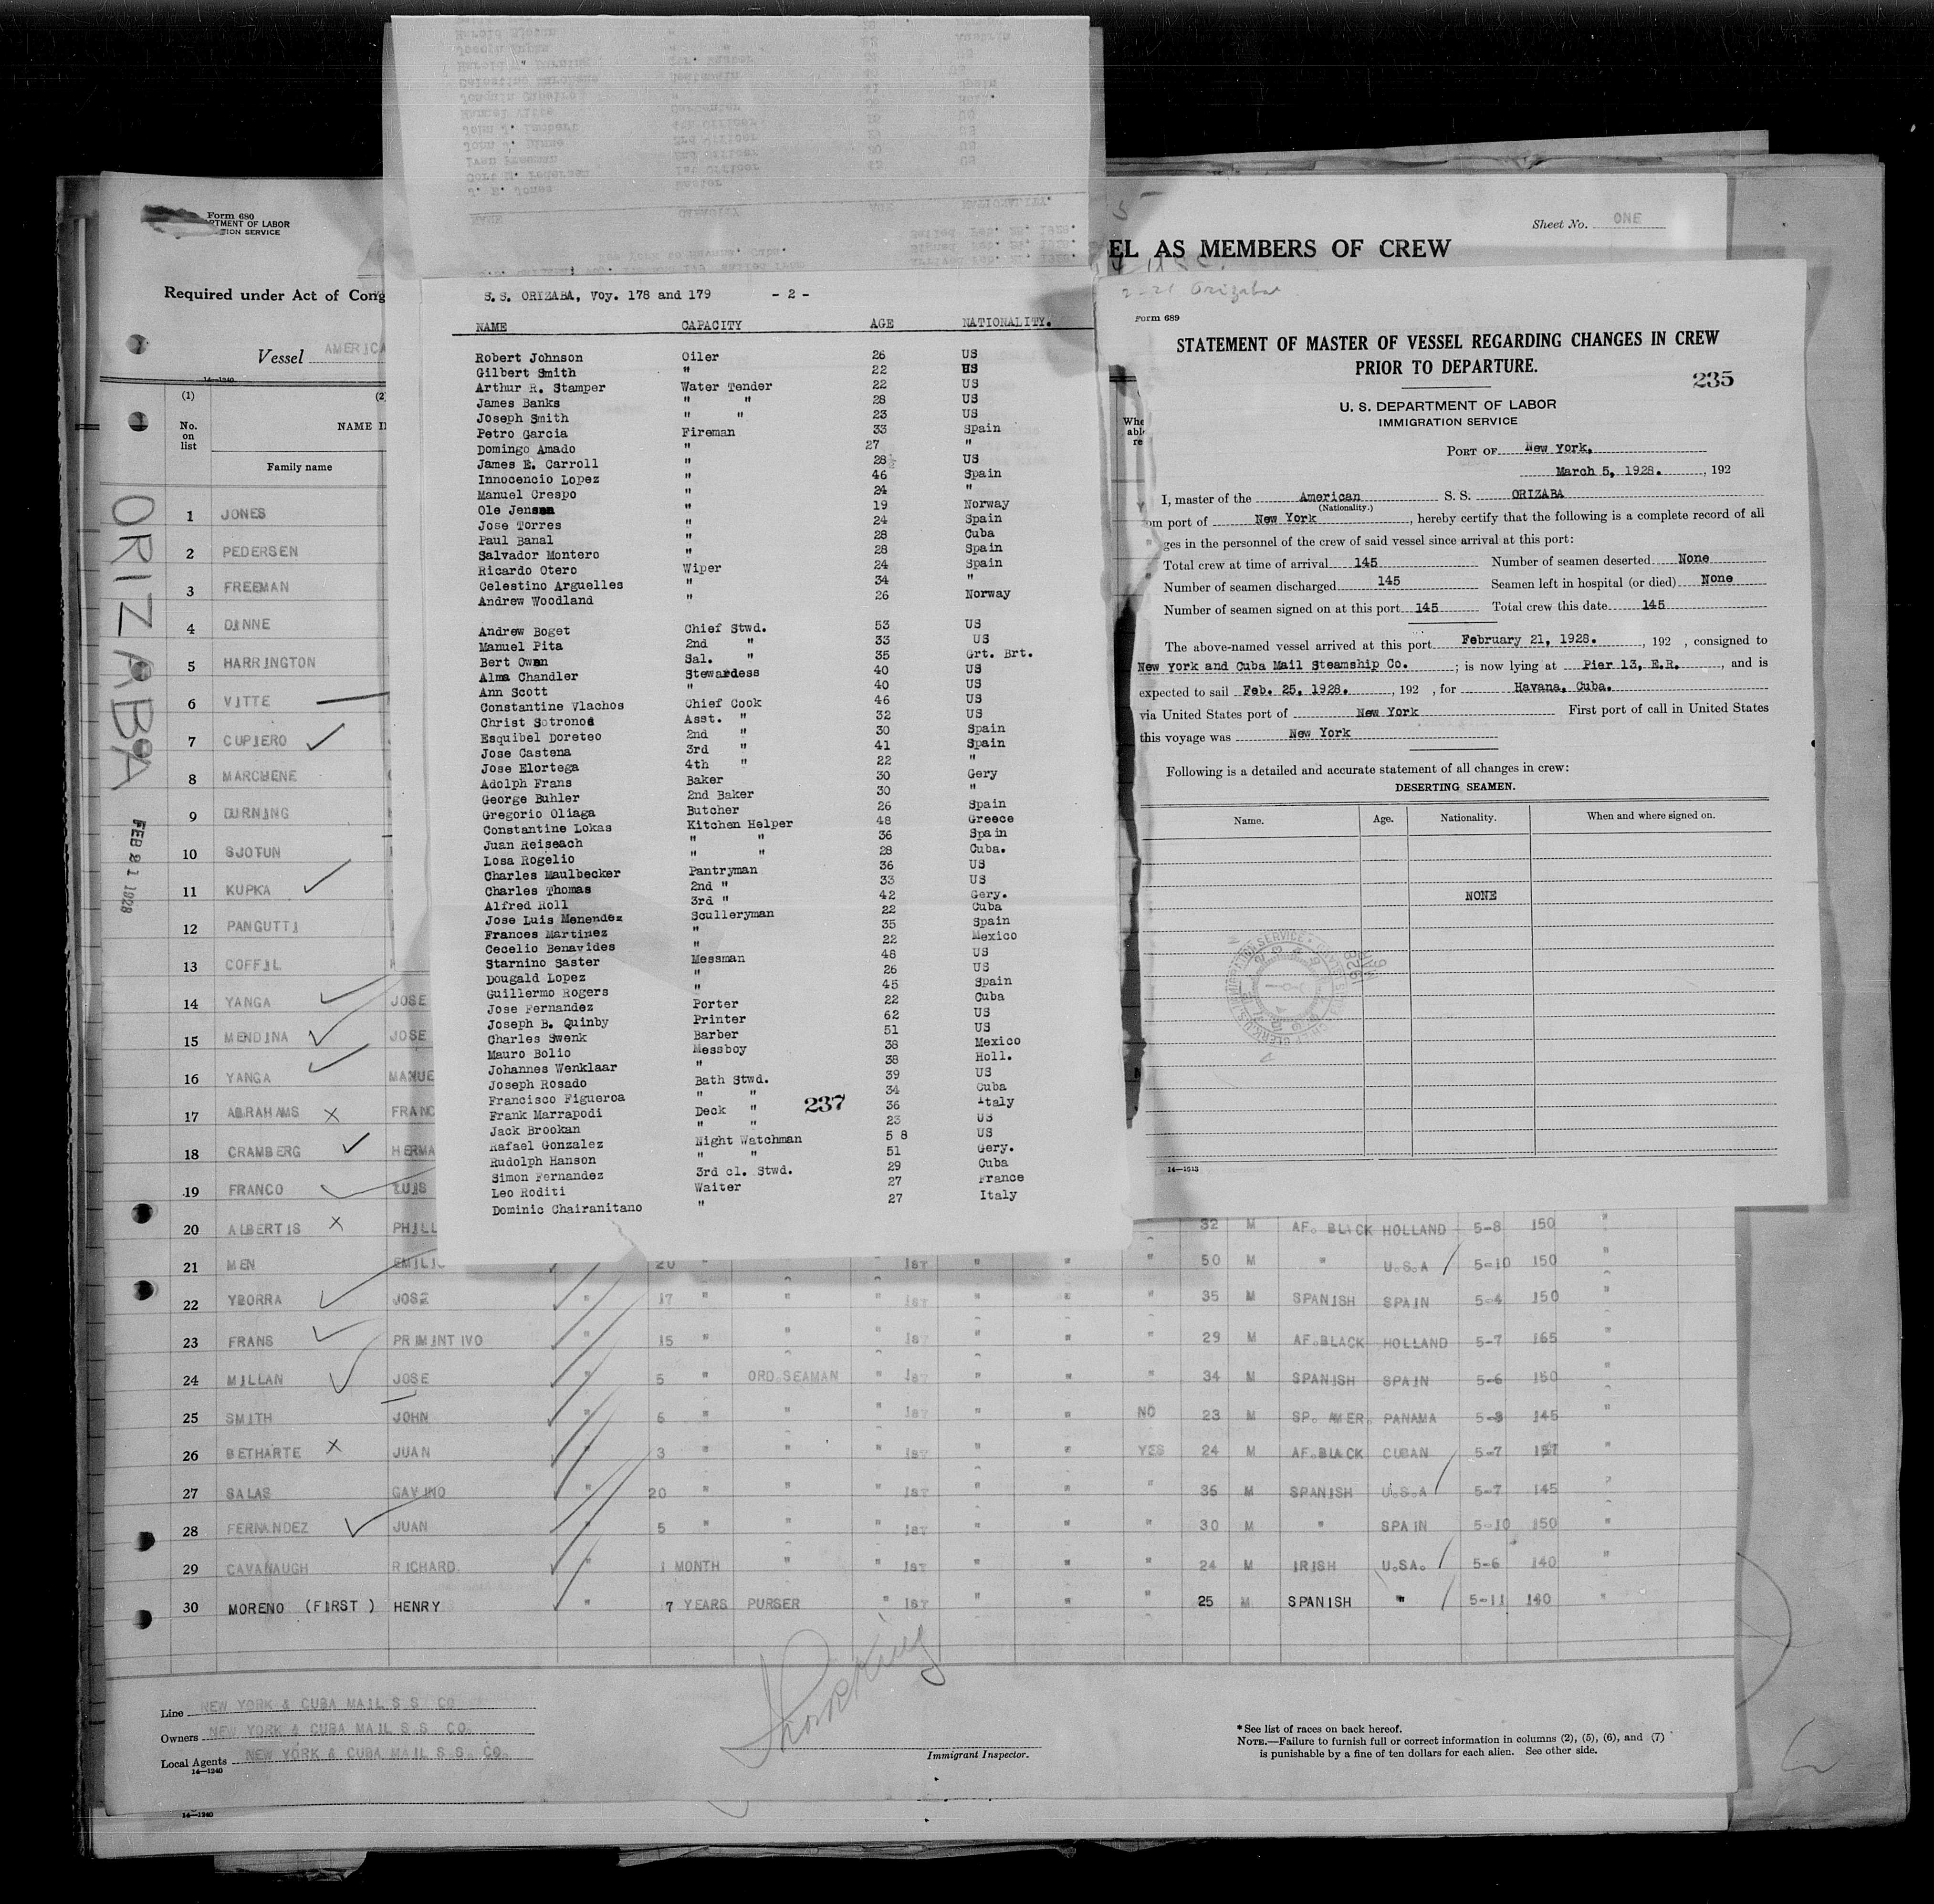 Form 680
RTMENT OF LABOR
TION SERVICE
Required under Act of Cong
Vessel AMERICA
14—1240
(1)
No. on list
NAME I
Family name
ORIZABA
FEB 21 1928
1 JONES
2 PEDERSEN
3 FREEMAN
4 DINNE
5 HARRINGTON
6 VITTE
7 CUPIERO
8 MARCHENE
9 DURNING
10 SJOTUN
11 KUPKA
12 PANGUTTI
13 COFFIL
14 YANGA JOSE
15 MENDINA JOSE
16 YANGA MANUE
17 ABRAHAMS FRANC
18 CRAMBERG HERMA
19 FRANCO LUIS
20 ALBERTIS PHILL 32 M AF. BLACK HOLLAND 5-8 150 "
21 MEN EMILI 20 " 1ST " " " 50 M " U.S.A 5-10 150 "
22 YBORRA JOSE " 17 " " " 1ST " " " 35 M SPANISH SPAIN 5-4 150 "
23 FRANS PRIMINTIVO " 15 " " " 1ST " " " 29 M AF.BLACK HOLLAND 5-7 165 "
24 MILLAN JOSE " 5 " ORD.SEAMAN " 1ST " " " 34 M SPANISH SPAIN 5-6 150 "
25 SMITH JOHN " 6 " " " 1ST " " NO 23 M SP. AMER. PANAMA 5-8 145 "
26 BETHARTE JUAN " 3 " " " 1ST " " YES 24 M AF.BLACK CUBAN 5-7 157 "
27 SALAS GAVINO " 20 " " " 1ST " " " 36 M SPANISH U.S.A 5-7 145 "
28 FERNANDEZ JUAN " 5 " " " 1ST " " " 30 M " SPAIN 5-10 150 "
29 CAVANAUGH RICHARD. " 1 MONTH " " 1ST " " " 24 M IRISH U.SA. 5-6 140 "
30 MORENO (FIRST) HENRY " 7 YEARS PURSER " 1ST " " " 25 M SPANISH " 5-11 140 "
Line NEW YORK & CUBA MAIL S S CO
Owners NEW YORK & CUBA MAIL S S CO.
Local Agents NEW YORK & CUBA MAIL S.S. CO.
14—1240
Immigrant Inspector.
* See list of races on back hereof.
NOTE.—Failure to furnish full or correct information in columns (2), (5), (6), and (7)
is punishable by a fine of ten dollars for each alien. See other side.
14—1240
S.S. ORIZABA, Voy. 178 and 179 - 2 -
NAME CAPACITY AGE NATIONALITY.
Robert Johnson Oiler 26 US
Gilbert Smith " 22 US
Arthur R. Stamper Water Tender 22 US
James Banks " " 28 US
Joseph Smith " " 23 US
Petro Garcia Fireman 33 Spain
Domingo Amado " 27 "
James E. Carroll " 28 US
Innocencio Lopez " 46 Spain
Manuel Crespo " 24 "
Ole Jensen " 19 Norway
Jose Torres " 24 Spain
Paul Banal " 28 Cuba
Salvador Montero " 28 Spain
Ricardo Otero Wiper 24 Spain
Celestino Arguelles " 34 "
Andrew Woodland " 26 Norway
Andrew Boget Chief Stwd. 53 US
Manuel Pita 2nd " 33 US
Bert Owen Sal. " 35 Grt. Brt.
Alma Chandler Stewardess 40 US
Ann Scott " 40 US
Constantine Vlachos Chief Cook 46 US
Christ Sotronod Asst. " 32 US
Esquibel Doreteo 2nd " 30 Spain
Jose Castena 3rd " 41 Spain
Jose Elortega 4th " 22 "
Adolph Frans Baker 30 Gery
George Buhler 2nd Baker 30 "
Gregorio Oliaga Butcher 26 Spain
Constantine Lokas Kitchen Helper 48 Greece
Juan Reiseach " " 36 Spain
Losa Rogelio " " 28 Cuba.
Charles Maulbecker Pantryman 36 US
Charles Thomas 2nd " 33 US
Alfred Roll 3rd " 42 Gery.
Jose Luis Menendez Sculleryman 22 Cuba
Frances Martinez " 35 Spain
Cecelio Benavides " 22 Mexico
Starnino Saster Messman 48 US
Dougald Lopez " 26 US
Guillermo Rogers " 45 Spain
Jose Fernandez Porter 22 Cuba
Joseph B. Quinby Printer 62 US
Charles Swenk Barber 51 US
Mauro Bolio Messboy 38 Mexico
Johannes Wenklaar " 38 Holl.
Joseph Rosado Bath Stwd. 39 US
Francisco Figueroa " " 34 Cuba
Frank Marrapodi Deck " 36 Italy
Jack Brookan " " 23 US
Rafael Gonzalez Night Watchman 5 8 US
Rudolph Hanson " " 51 Gery.
Simon Fernandez 3rd cl. Stwd. 29 Cuba
Leo Roditi Waiter 27 France
Dominic Chairanitano " 27 Italy
237
Sheet No. ONE
EL AS MEMBERS OF CREW
2-21 Orizaba
Form 689
STATEMENT OF MASTER OF VESSEL REGARDING CHANGES IN CREW
PRIOR TO DEPARTURE.
235
U. S. DEPARTMENT OF LABOR
IMMIGRATION SERVICE
PORT OF New York,
March 5, 1928. , 192
I, master of the American S. S. ORIZABA
(Nationality.)
om port of New York , hereby certify that the following is a complete record of all
ges in the personnel of the crew of said vessel since arrival at this port:
Total crew at time of arrival 145 Number of seamen deserted None
Number of seamen discharged 145 Seamen left in hospital (or died) None
Number of seamen signed on at this port 145 Total crew this date 145
The above-named vessel arrived at this port February 21, 1928. , 192 , consigned to
New York and Cuba Mail Steamship Co. ; is now lying at Pier 13, E.R. , and is
expected to sail Feb. 25, 1928. , 192 , for Havana, Cuba.
via United States port of New York First port of call in United States
this voyage was New York
Following is a detailed and accurate statement of all changes in crew:
DESERTING SEAMEN.
Name. Age. Nationality. When and where signed on.
NONE
14—1513